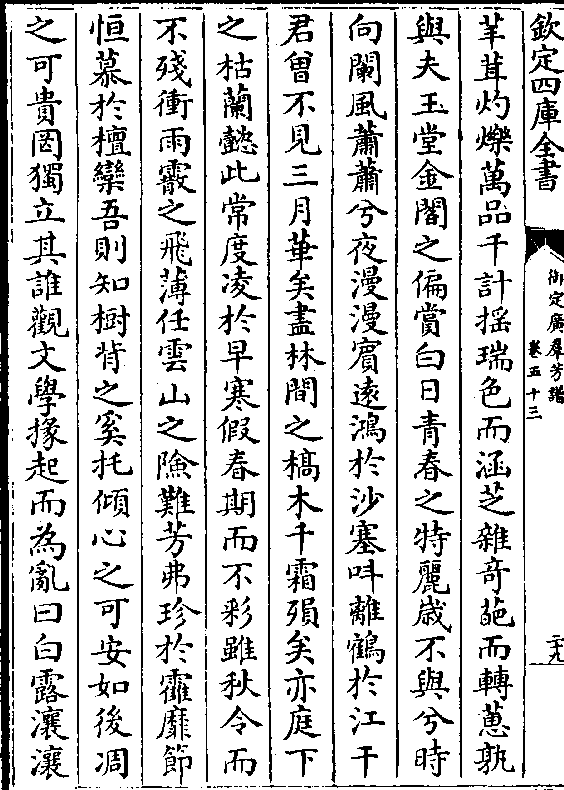 欽定四庫全書
御定廣羣芳譜
卷五十三
二十九
芊茸灼爍萬品千計揺瑞色而涵芝雜奇葩而轉蕙孰
與夫玉堂金閣之偏賞白日青春之特麗歳不與兮時
向闌風蕭蕭兮夜漫漫賓逺鴻於沙塞呌離鶴於江干
君曽不見三月華矣盡林間之槁木千霜殞矣亦庭下
之枯蘭懿此常度凌於早寒假春期而不彩雖秋令而
不殘衝雨霰之飛薄任雲山之險難芳弗珍於靃靡節
恒慕於檀欒吾則知樹背之奚托傾心之可安如後凋
之可貴罔獨立其誰觀文學掾起而為亂曰白露瀼瀼